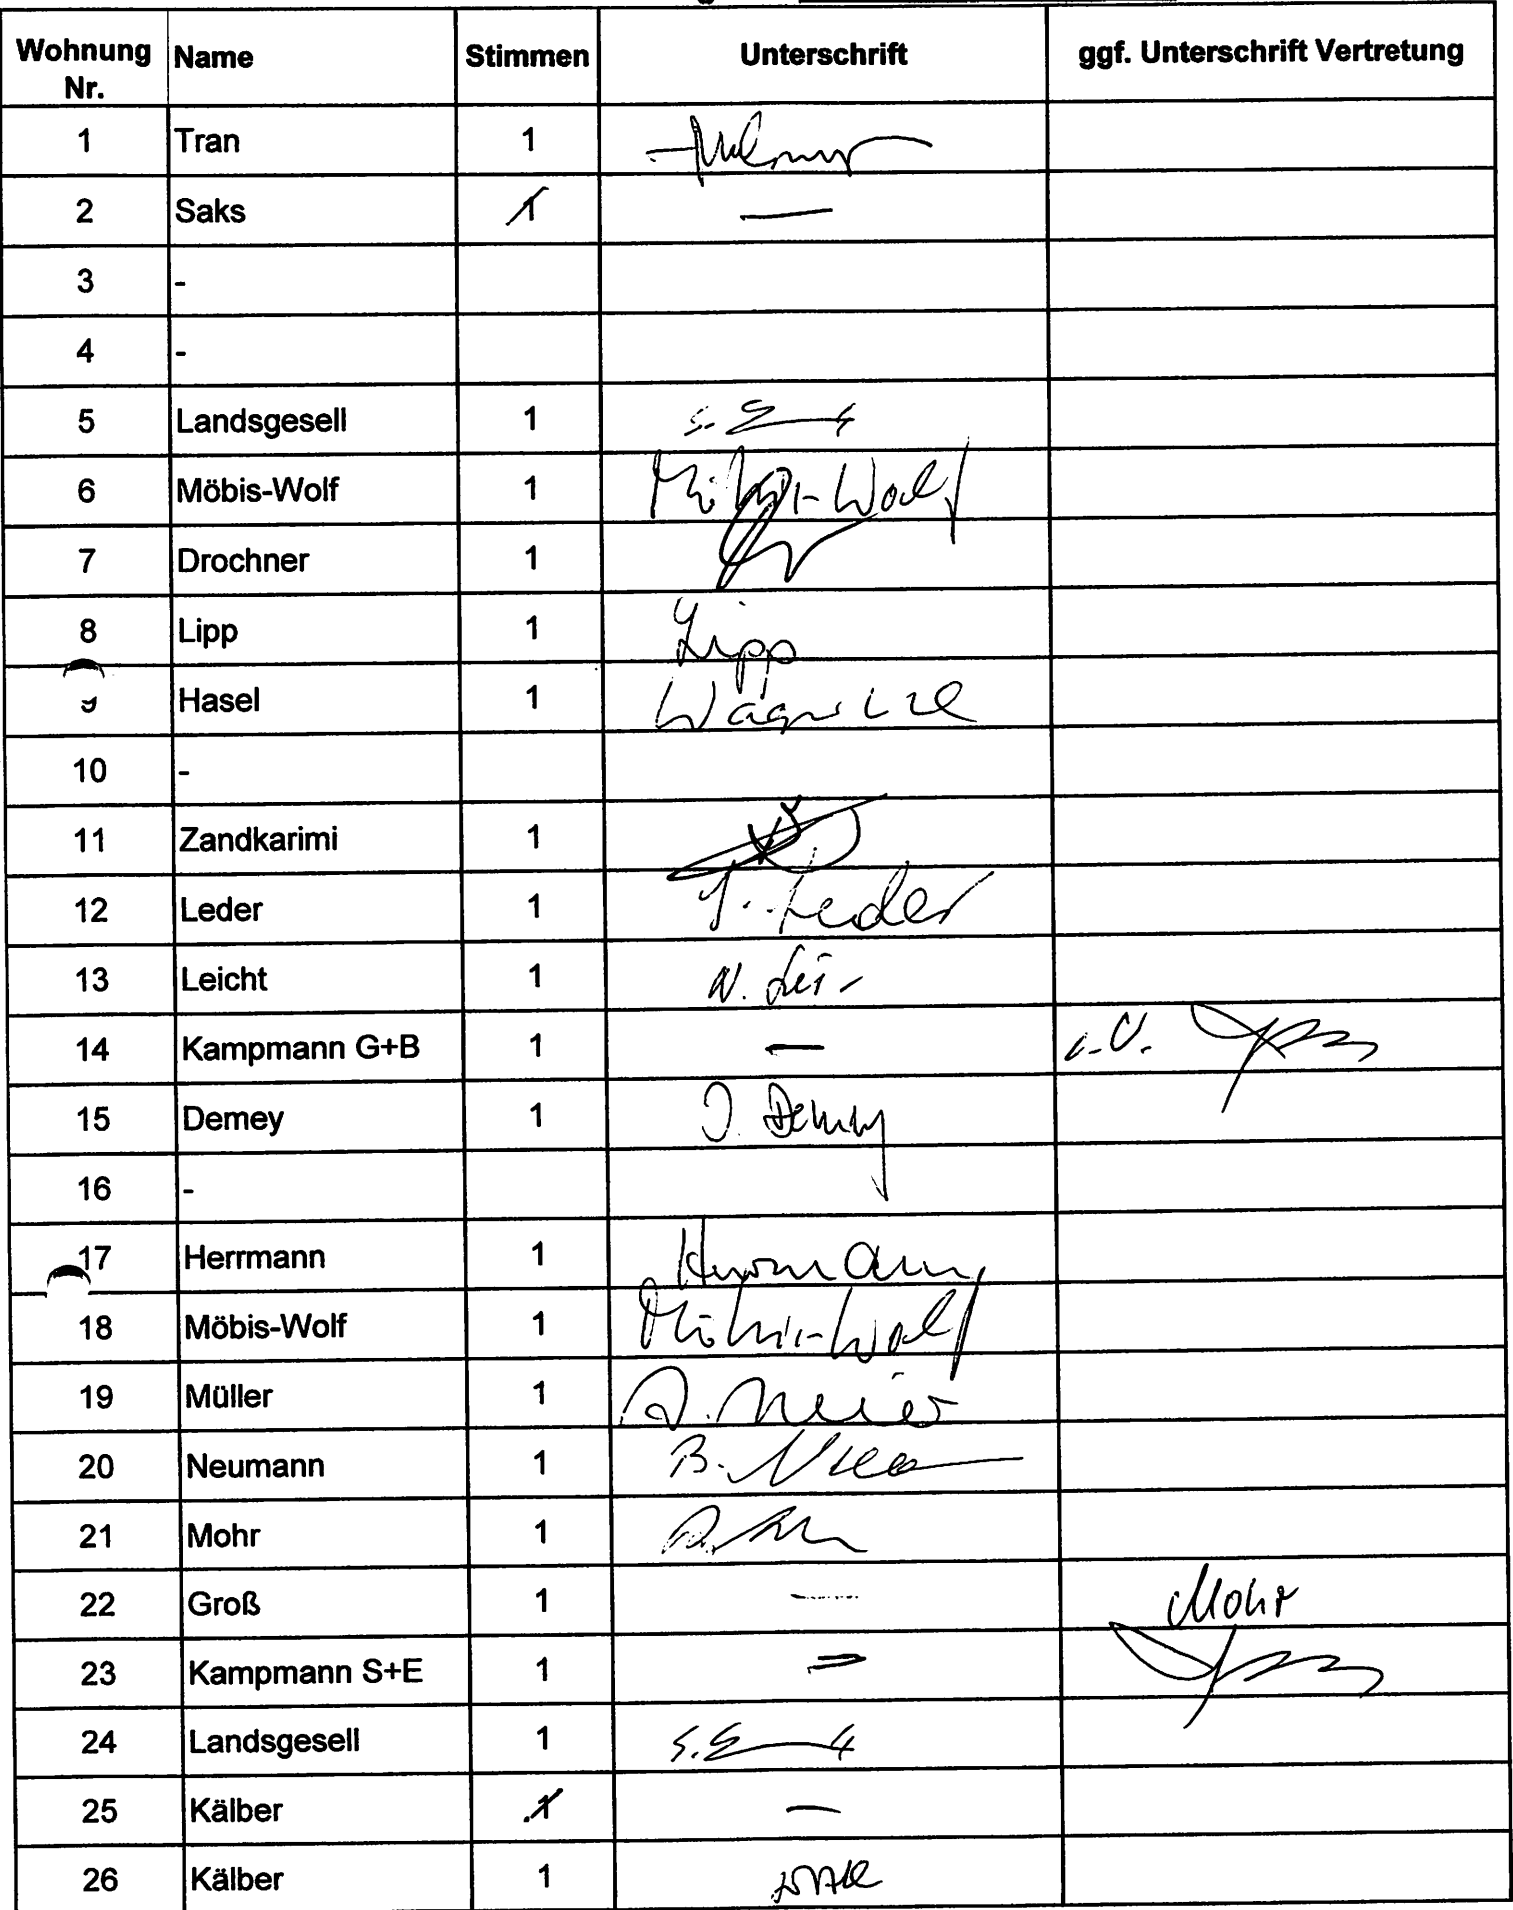 Wohnung Nr. Name Stimmen Unterschrift ggf. Unterschrift Vertretung
1 Tran 1
2 Saks 1 —
3 -
4 -
5 Landsgesell 1
6 Möbis-Wolf 1 Möbis-Wolf
7 Drochner 1
8 Lipp 1 Lipp
9 Hasel 1
10 -
11 Zandkarimi 1
12 Leder 1 Leder
13 Leicht 1
14 Kampmann G+B 1 — i.V.
15 Demey 1 J. Demey
16 -
17 Herrmann 1 Herrmann
18 Möbis-Wolf 1 Möbis-Wolf
19 Müller 1
20 Neumann 1
21 Mohr 1
22 Groß 1 — Mohr
23 Kampmann S+E 1
24 Landsgesell 1
25 Kälber 1 —
26 Kälber 1